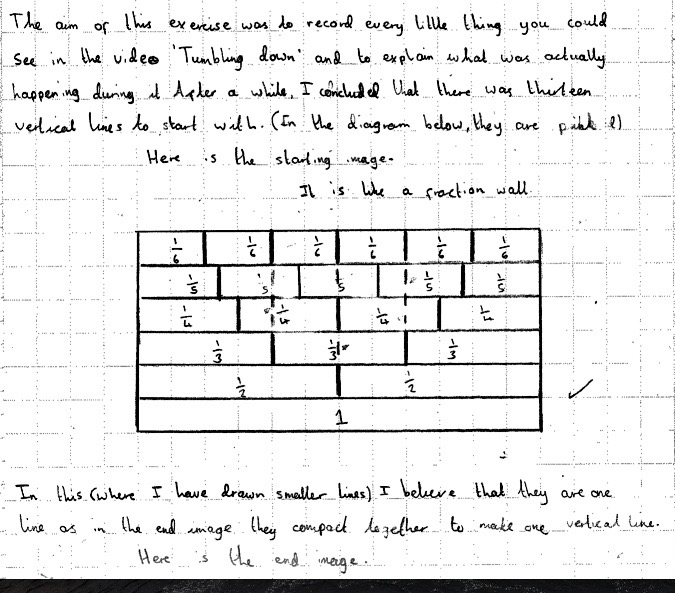 The aim of this exercise was to record every little thing you could
see in the video 'Tumbling down' and to explain what was actually
happening during it After a while, I concluded that there was thirteen
vertical lines to start with. (In the diagram below, they are
Here is the starting image.
It is like a fraction wall.
1/6 1/6 1/6 1/6 1/6 1/6
1/5 1/5 1/5 1/5 1/5
1/4 1/4 1/4 1/4
1/3 1/3 1/3
1/2 1/2
1
In this (where I have drawn smaller lines) I believe that they are one
line as in the end image they compact together to make one vertical line.
Here is the end image.